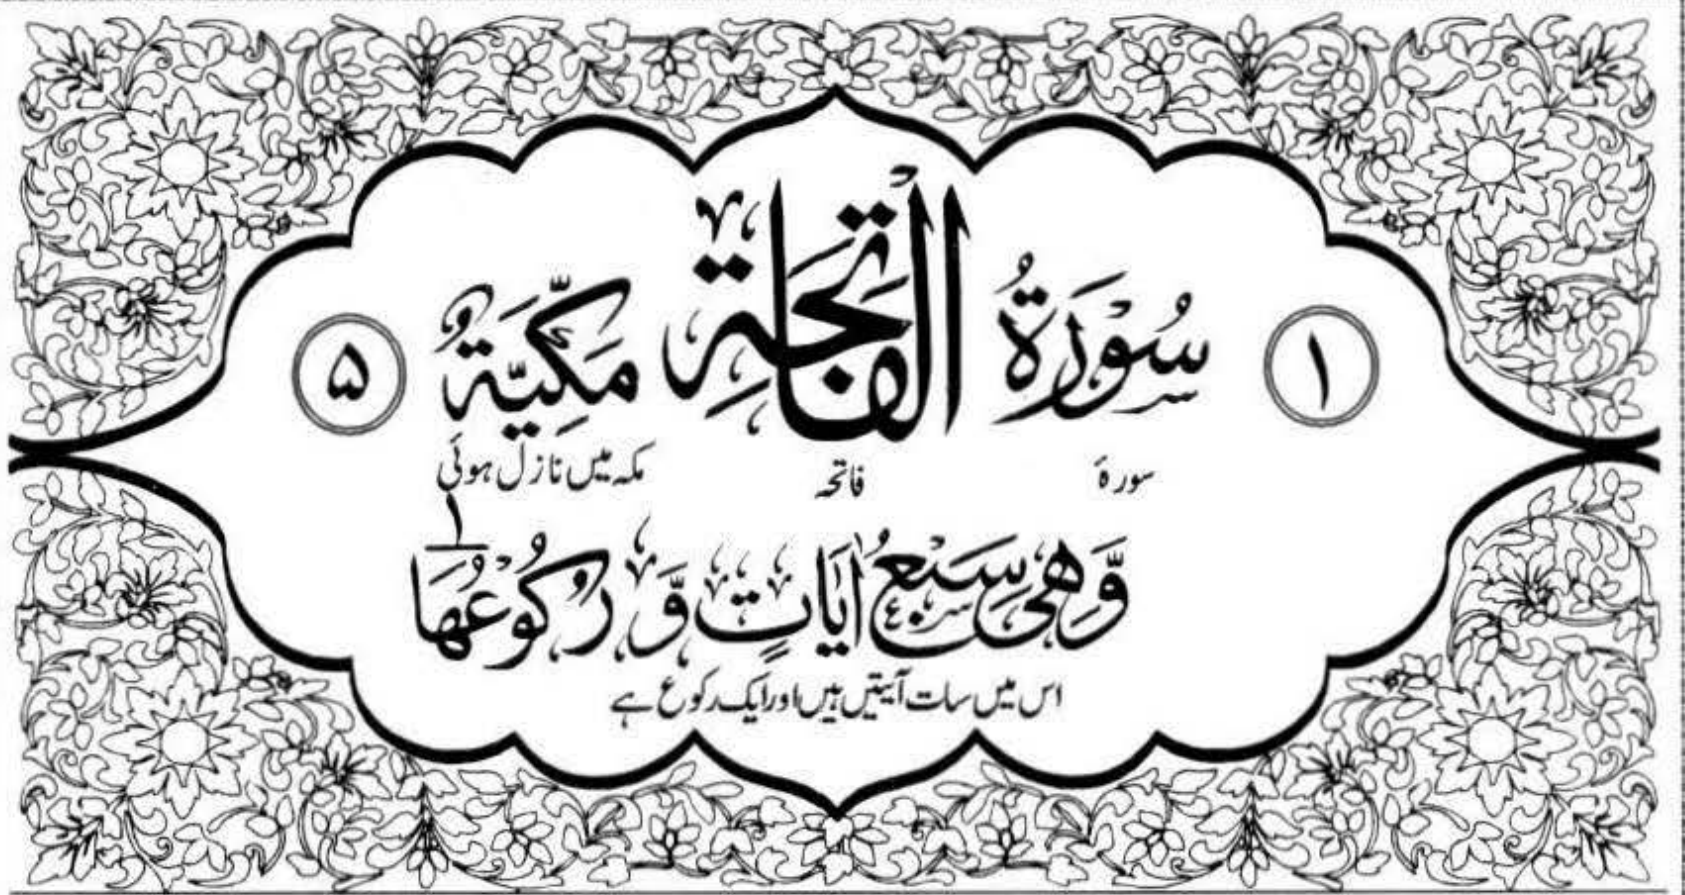 ١ سُوْرَةُ الْفَاتِحَةِ مَكِّيَّةٌ ۵
سورۂ فاتحہ مکہ میں نازل ہوئی
وَّهِیَ سَبْعُ اٰیَاتٍ وَّ رُكُوْعُهَا ١
اس میں سات آیتیں ہیں اور ایک رکوع ہے